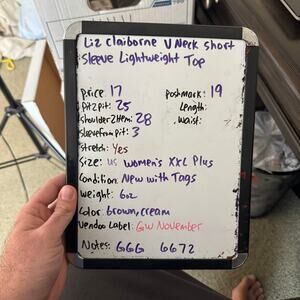 Liz Claiborne V Neck short
sleeve Lightweight Top
Price: 17 Poshmark: 19
Pit2pit: 25 Length:
Shoulder2Hem: 28 Waist:
Sleevefrompit: 3
Stretch: Yes
Size: US Women's XXL Plus
Condition: New with Tags
Weight: 6oz
Color: Brown, Cream
Vendoo Label: GW November
Notes: GGG 6672